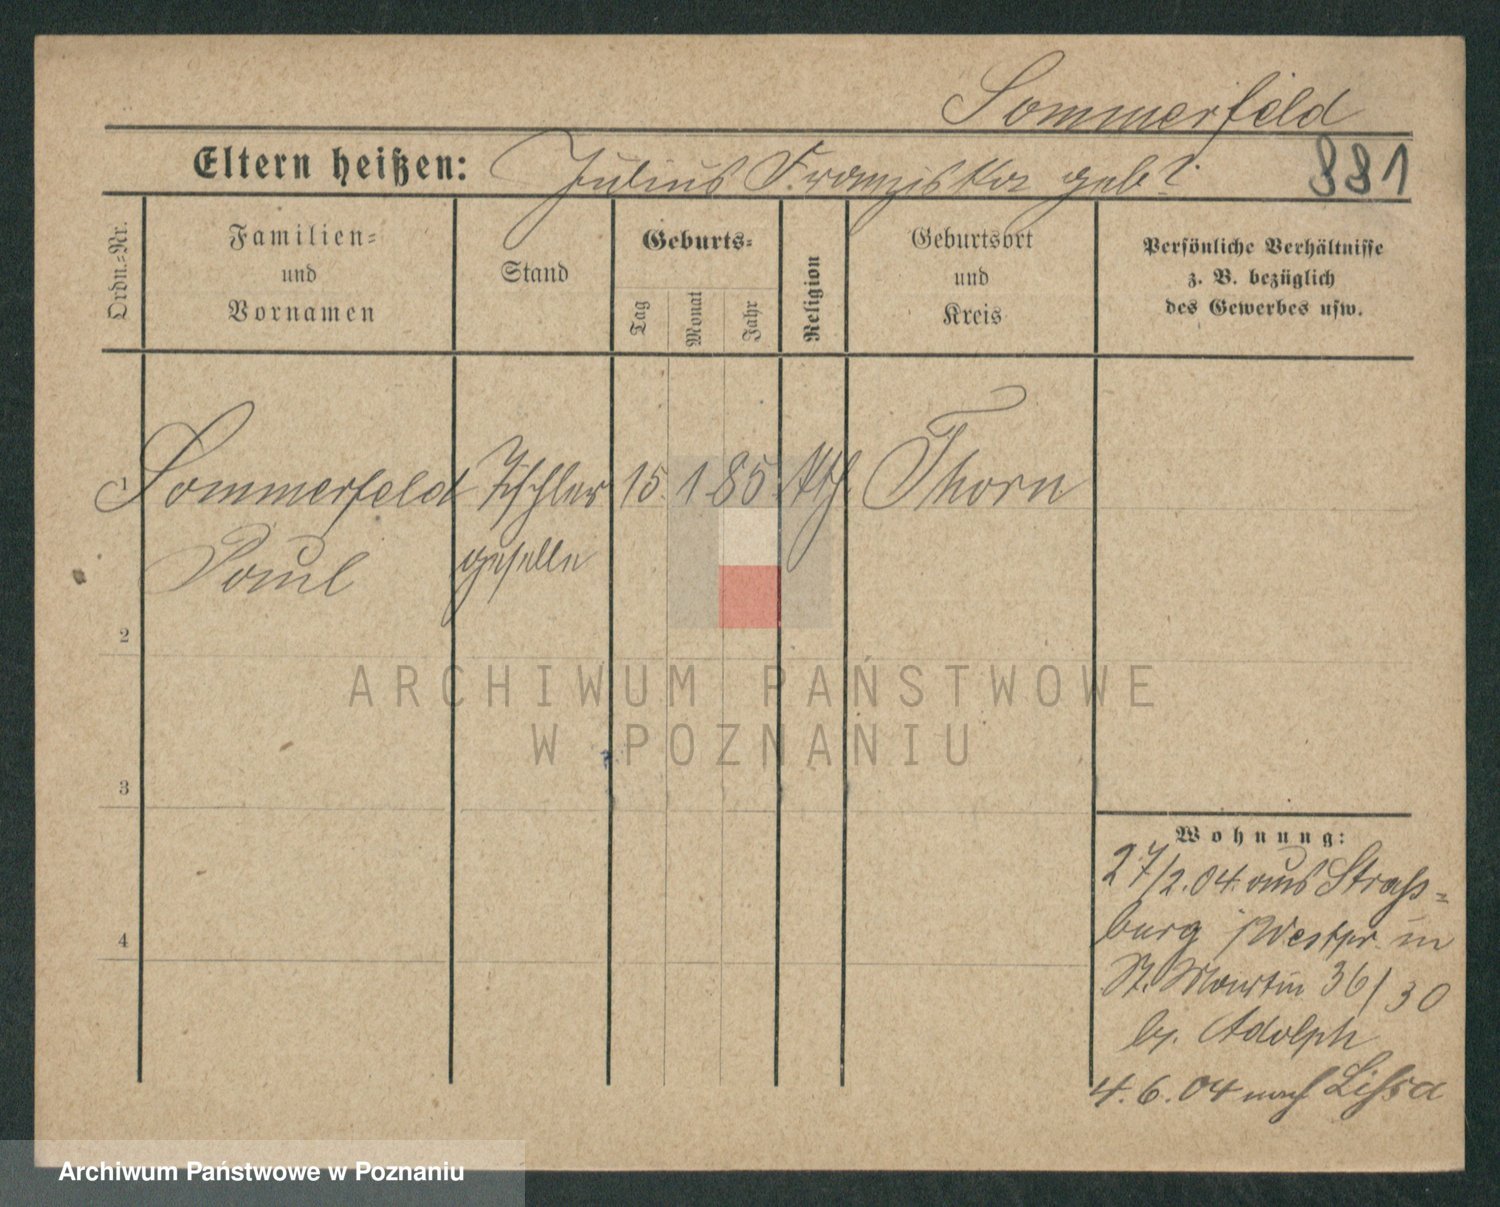 Sommerfeld
Eltern heißen: Julius Franziska geb?
881
Ordn.-Nr.
Familien-
und
Vornamen
Stand
Geburts-
Tag
Monat
Jahr
Religion
Geburtsort
und
Kreis
Persönliche Verhältnisse
z. B. bezüglich
des Gewerbes usw.
1 Sommerfeld Tischler 15. 1. 85. kth. Thorn
Paul geselle
2
ARCHIWUM PAŃSTWOWE
W POZNANIU
3
4
Wohnung:
27/2.04. aus Strass-
burg Westpr. in
St. Martin 36/30
b. Adolph
4.6.04 nach Lissa
Archiwum Państwowe w Poznaniu